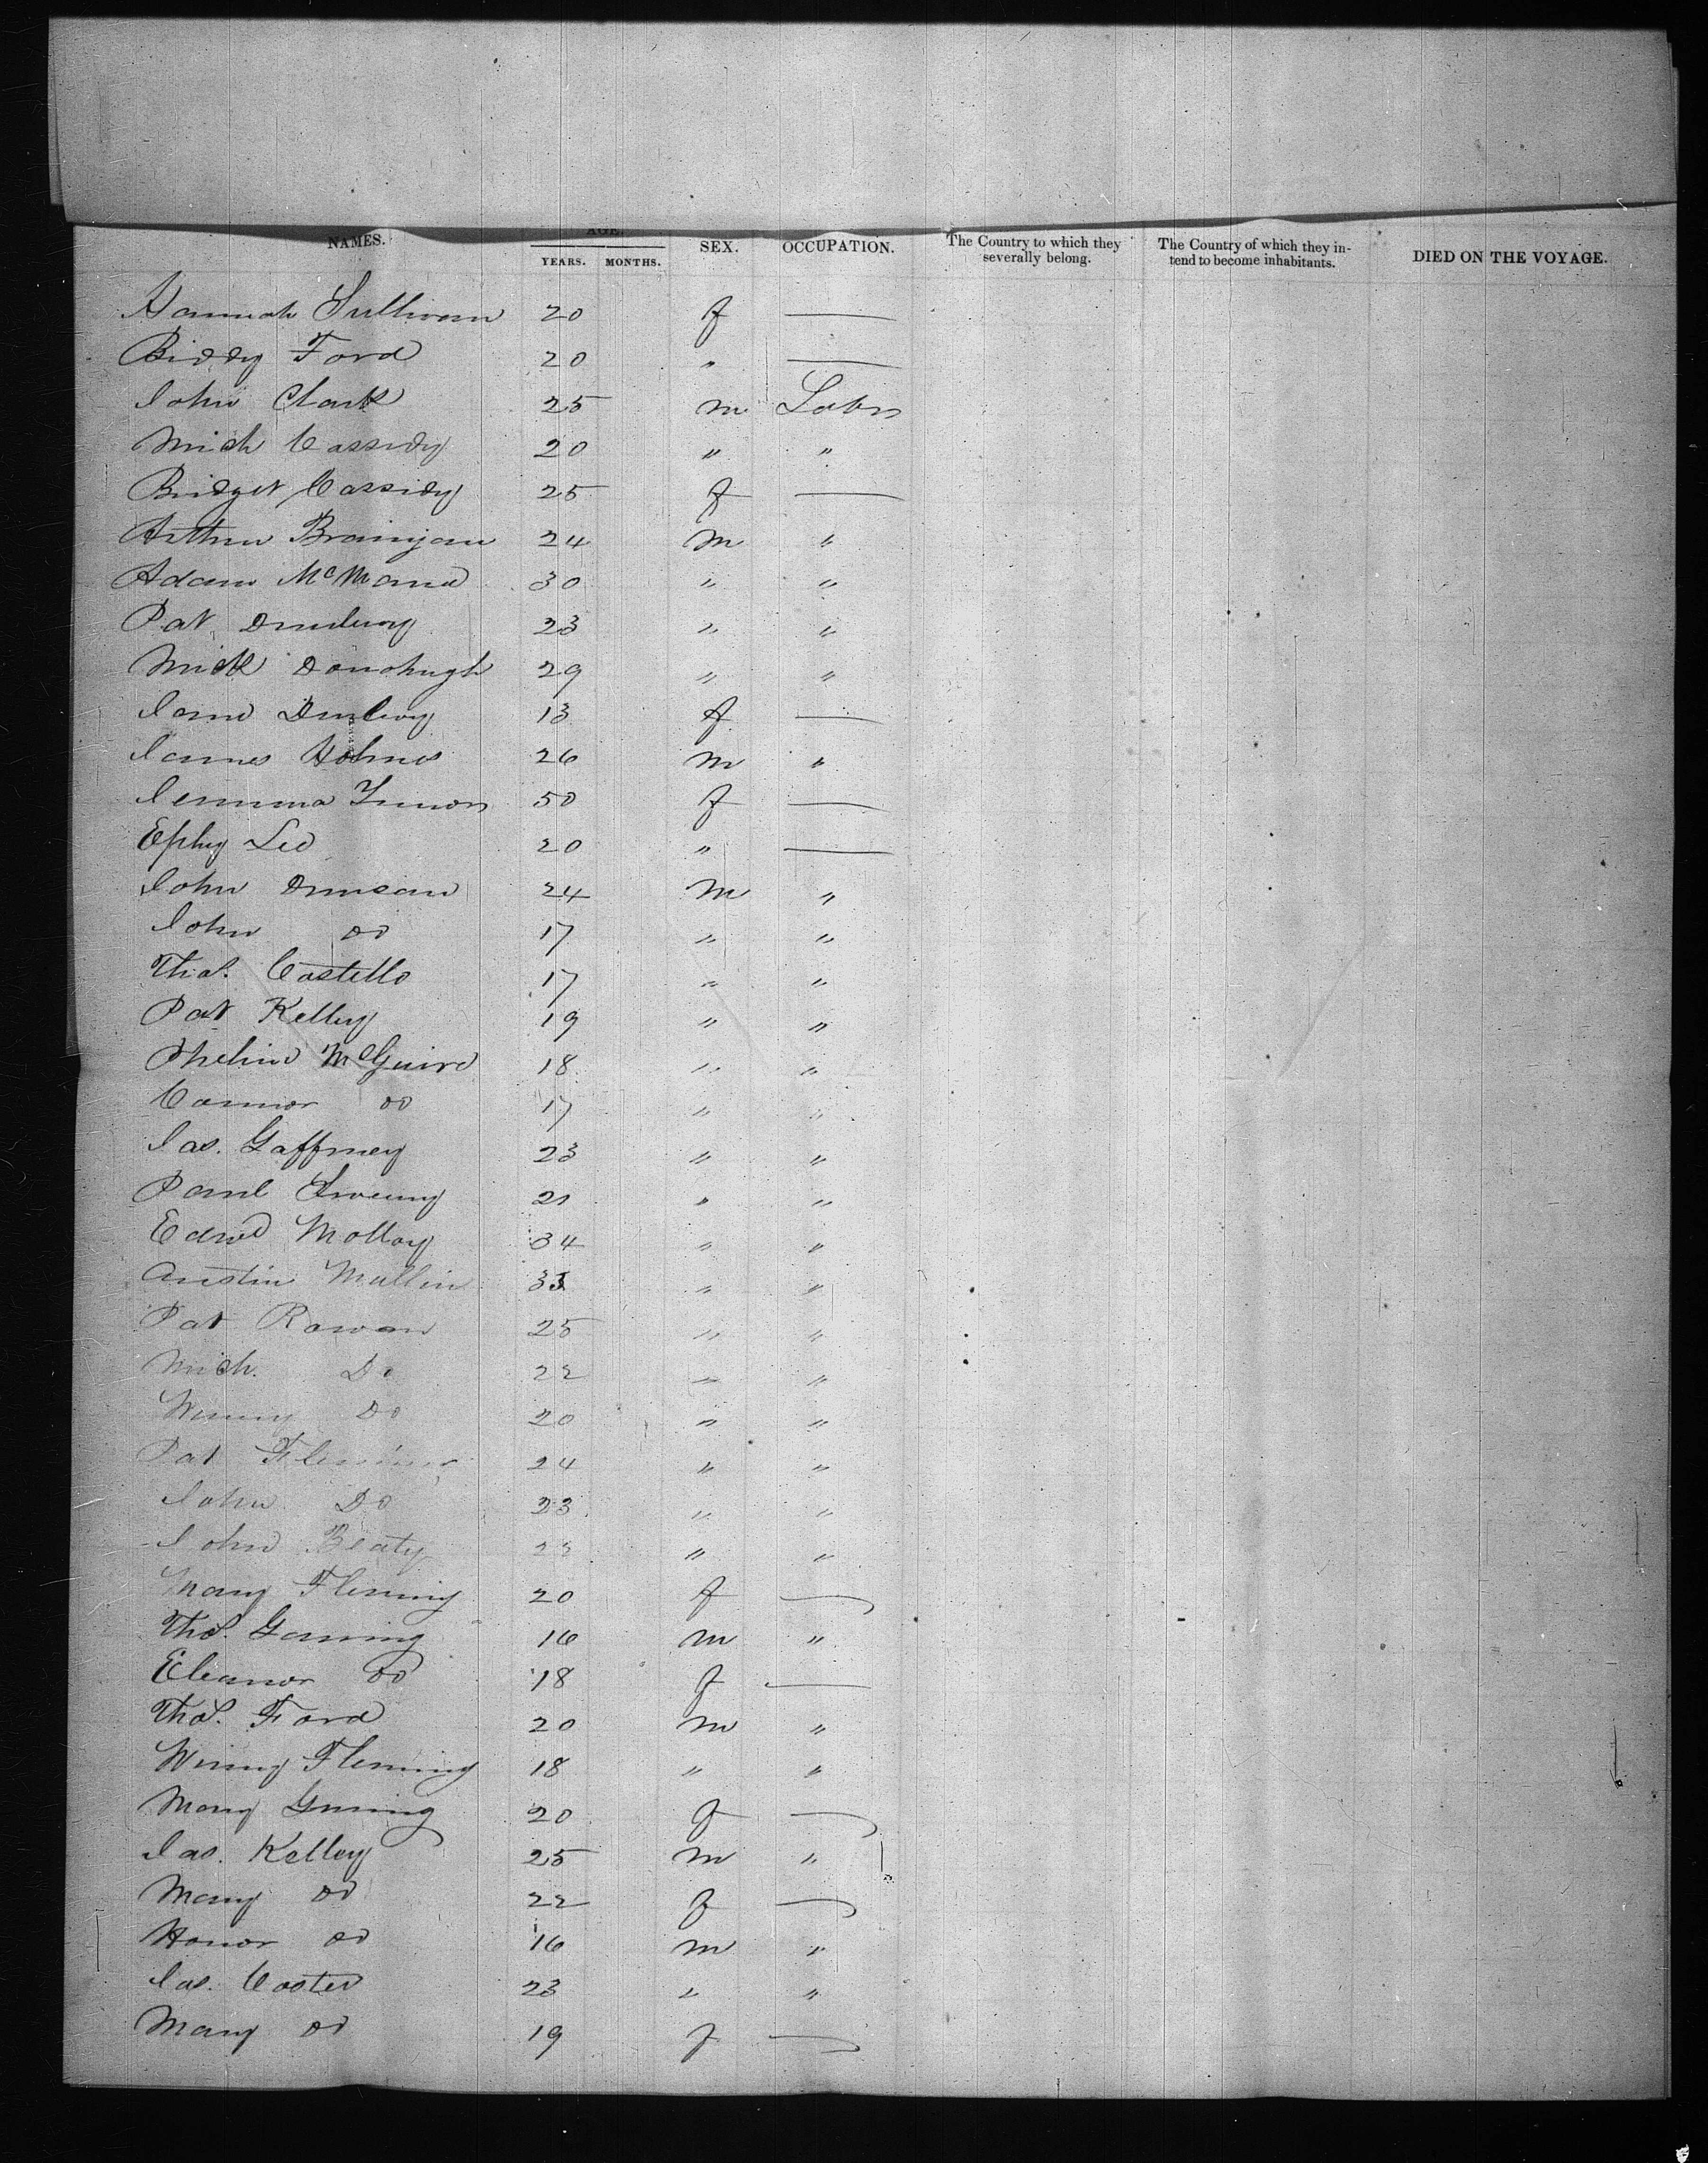 NAMES. AGE. SEX. OCCUPATION. The Country to which they severally belong. The Country of which they in-tend to become inhabitants. DIED ON THE VOYAGE.
YEARS. MONTHS.
Hannah Sullivan 20 f —
Biddy Ford 20 " —
John Clark 25 m Labr
Mich Cassidy 20 " "
Bridget Cassidy 25 f —
Arthur Branigan 24 m "
Adam McMann 30 " "
Pat 23 " "
Mick Donohugh 29 " "
Jane 13 f —
James Holmes 26 m "
Jemima 50 f —
Ephy Lee 20 " —
John Duncan 24 m "
John Do 17 " "
Thos. Costello 17 " "
Pat Kelley 19 " "
Phelim McGuire 18 " "
Connor Do 17 " "
Jas. Gaffney 23 " "
Paul Sweeny 21 " "
Edwd Molloy 34 " "
Austin Mullin 33 " "
Pat Rowan 25 " "
Mich. Do 22 " "
Winny Do 20 " "
Pat Fleming 24 " "
John Do 23 " "
John Beaty 22 " "
Mary Fleming 20 f —
Thos. Ganning 16 m "
Eleanor Do 18 f —
Thos. Ford 20 m "
Winny Fleming 18 " "
Mary Gunning 20 f —
Jas. Kelley 25 m "
Mary Do 22 f —
Honor Do 16 m "
Jas. Coster 23 " "
Mary Do 19 f —